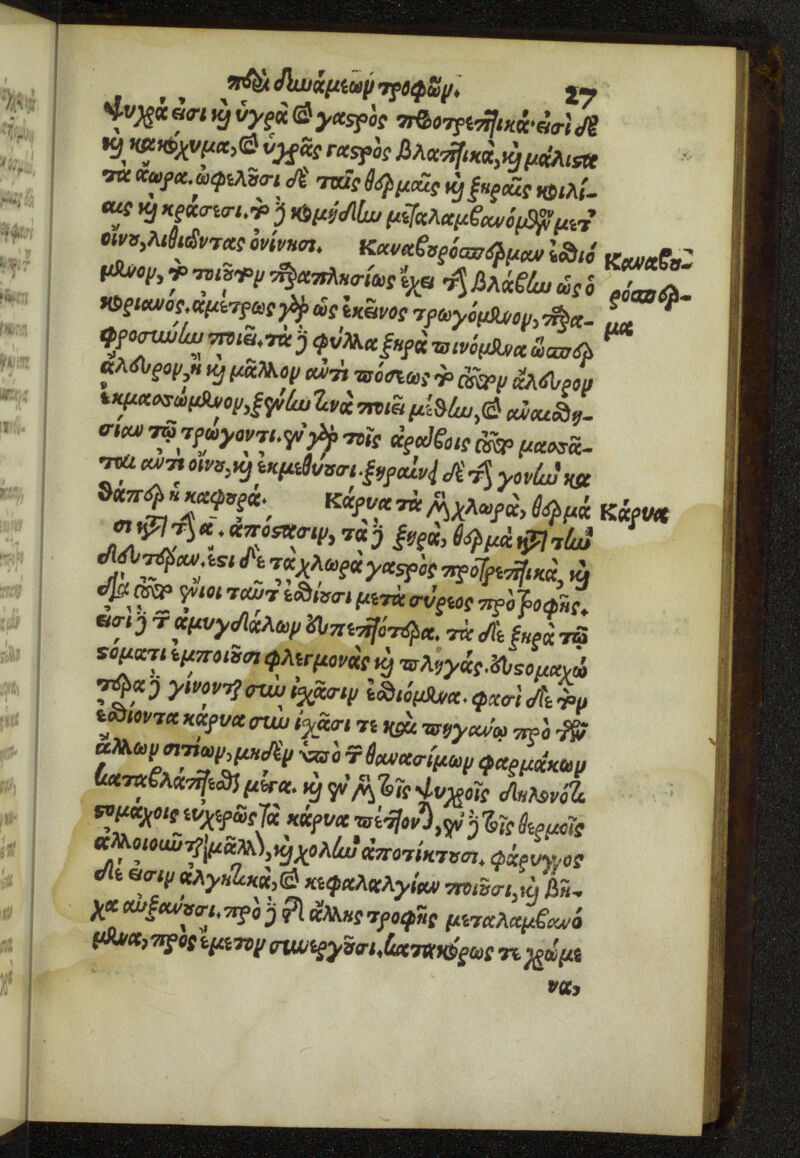 περὶ δυνάμεων τροφῶν. 27
ψυχρά εἰσι καὶ ὑγρὰ καὶ γαστρὸς προτρεπτικά· εἰσὶ δὲ
καὶ κακόχυμα, καὶ ὑγρᾶς γαστρὸς βλαπτικά, καὶ μάλιστα
τὰ ἄωρα. ὠφελοῦσι δὲ ταῖς θερμαῖς καὶ ξηραῖς κοιλί-
αις καὶ κράσεσι. τὸ δὲ κομήδην μεταλαμβανόμενον μετ'
οἴνου, λιθιῶντας ὀνίνησι. Καναβουρόσπερμαν ἐσθιό
μενον, τὸ τοιοῦτον παραπλησίως ἔχει τὴν βλάβην ὡς ὁ
κοριανός. ἀμέτρως γὰρ ὡς ἐκεῖνος τρωγόμενον, παρα-
φροσύνην ποιεῖ. τὰ δὲ φύλλα ξηρὰ πινόμενα ὥσπερ
ἄλευρον, ἢ καὶ μᾶλλον ἀντὶ πόσεως τὸ ἄλευρον
ἐκμασσώμενον, ξένην τινὰ ποιεῖ μέθην, καὶ ἀναισθη-
σίαν τῷ τρώγοντι. ἐν γὰρ τοῖς ἀράβοις τοῦτο μασσᾶ-
ται ἀντὶ οἴνου, καὶ ἐκμεθύουσι. ξηραίνει δὲ τὴν γονὴν κα
θάπερ ἡ καφουρά. Κάρυα τὰ μὲν χλωρὰ, θερμά
σι κατὰ τὴν α. ἀπόστασιν, τὰ δὲ ξηρὰ, θερμὰ κατὰ τὴν
δευτέραν. ἔστι δὲ τὰ χλωρὰ γαστρὸς προτρεπτικὰ, καὶ
διὰ τοῦτο ἔνιοι ταῦτ' ἐσθίουσι μετὰ σύρεος πρὸ τροφῆς.
εἰσὶ δὲ τῶν ἀμυγδάλων εὐπεπτότερα. τὰ δὲ ξηρὰ τῷ
στόματι ἐμποιοῦσι φλεγμονὰς καὶ πληγάς. εὐστομαχώ
τερα δὲ γίνονται σὺν ἰχᾶσιν ἐσθιόμενα. φασὶ δὲ τὸν
ἐσθίοντα κάρυα σὺν ἰχᾶσι τε καὶ πηγανίῳ πρὸ τῶν
ἄλλων σιτίων, μηδὲν ὑπὸ τῶν θανασίμων φαρμάκων
καταβλάπτεσθαι μέγα. καὶ ἐν μὲν τοῖς ψυχροῖς δηλονότι
στομάχοις εὐχερῶς τὰ κάρυα πέπτονται, ἐν δὲ τοῖς θερμοῖς
ἀλλοιοῦνται μᾶλλον, καὶ χολὴν ἀποτίκτουσι. φάρυγγος
δὲ εἰσιν ἀλγητικὰ, καὶ κεφαλαλγίαν ποιοῦσι, καὶ βῆ-
χα αὐξάνουσι. πρὸ δὲ τῆς ἄλλης τροφῆς μεταλαμβανό
μενα, πρὸς ἔμετον συνεργοῦσι. κατακόρως τε χρώμε
να,
Καναβου-
ρόσπερ-
μα
Κάρυα